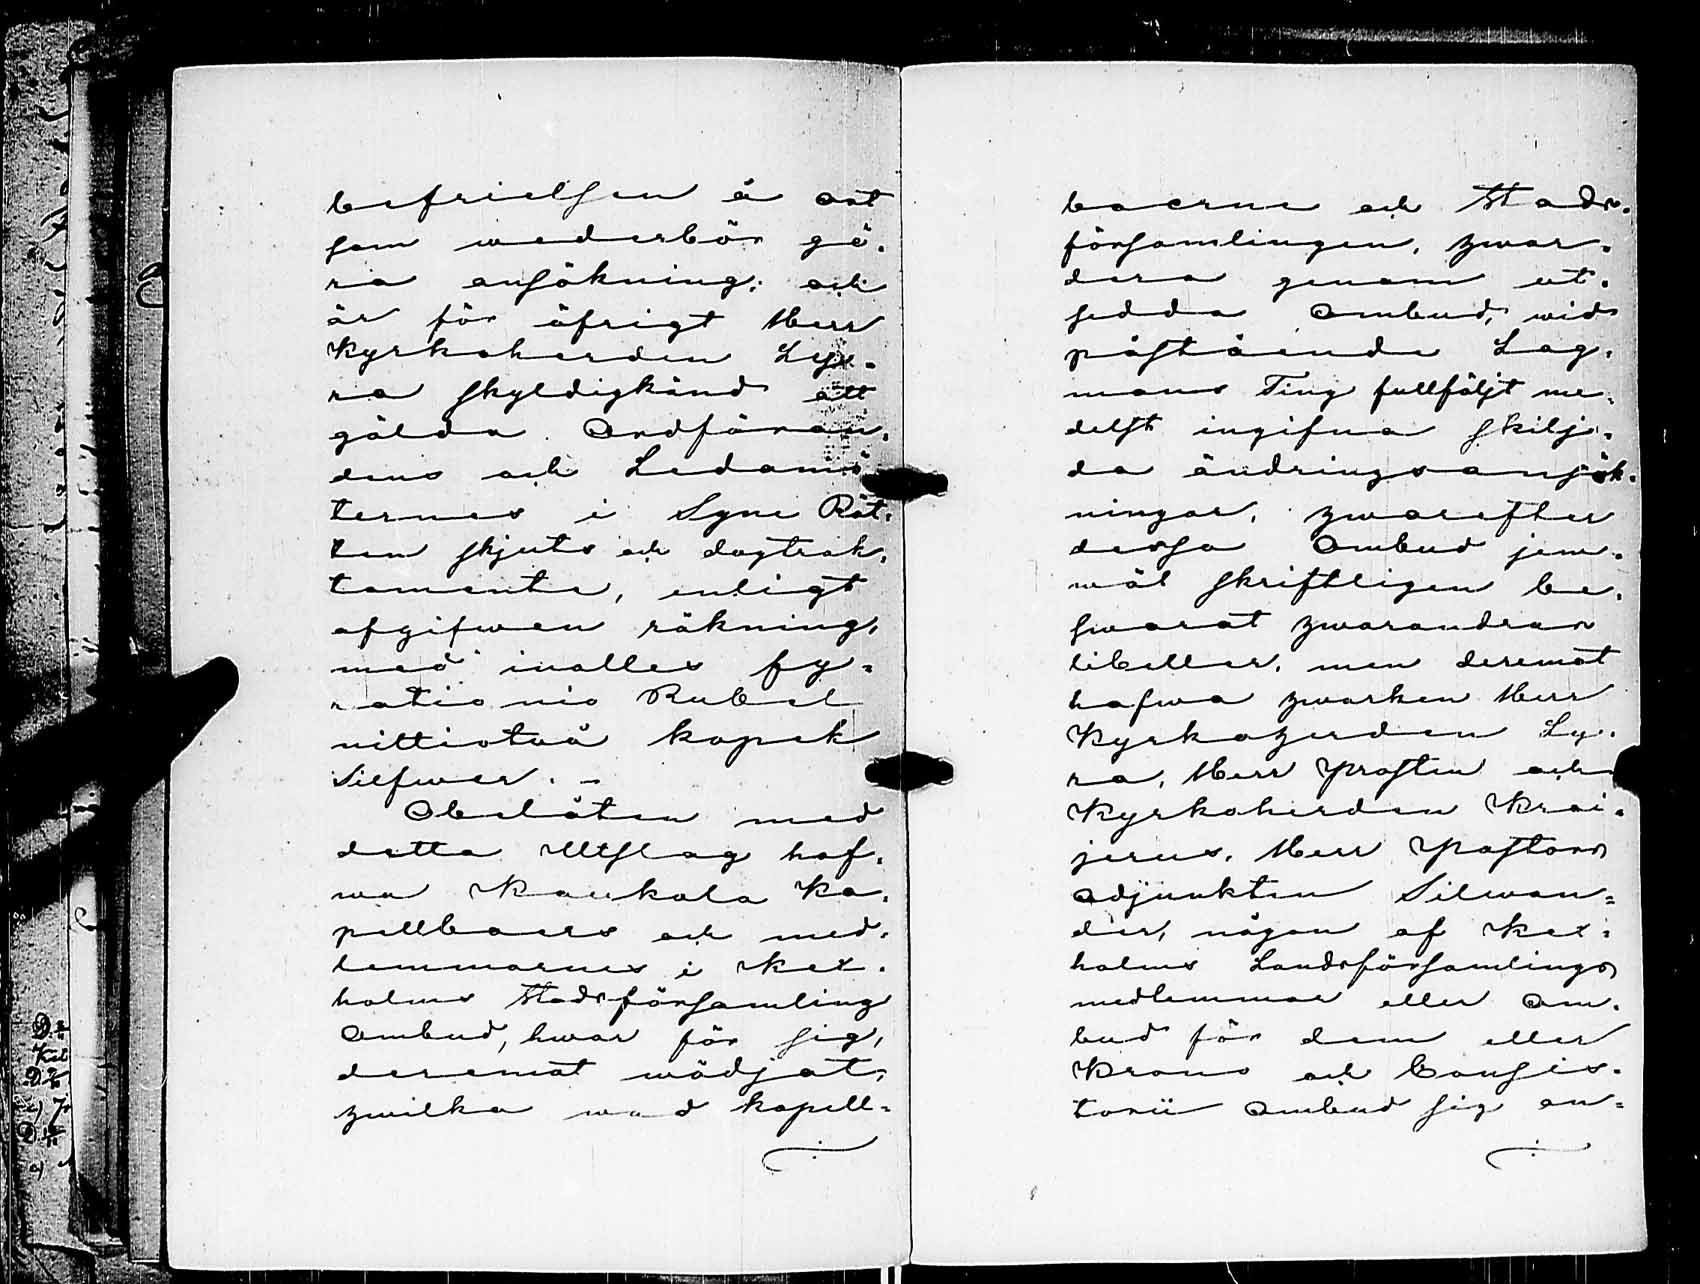 befrielsen å ort
som wederbör gö-
ra ansökning; och
är för öfrigt Herr
Kyrkoherden Lyr-
ra skyldigkänd att
gälda Ordföran-
dens och Ledamö-
ternes i Syne Rät-
ten skjuts och dagtrak-
tamente, enligt
afgifwen räkning,
med inalles fy-
ratio nio Rubel
nittiotvå kopek
Silfwer. -
Obelåten med
detta Utslag haf-
wa Kaukola Ka-
pellboers och med-
lemmarnes i Kex-
holms Stadsförsamling
Ombud, hwar för sig,
deremot wädjat,
hwilka wad kapell-
boerne och Stads-
församlingen, hwar-
dera genom ut-
sedda Ombud, wid
påstående Lag-
mans Ting fullföljt me-
delst ingifna skilj-
da ändringsansök-
ningar, hwarefter
dessa Ombud jem-
wäl skriftligen be-
swarat hwarandras
libeller, men deremot
hafwa hwarken Herr
Kyrkoherden Ly-
ra, Herr Prosten och
Kyrkoherden Krai-
jerus, Herr Pastors
Adjunkten Silwan-
der, någon af Kex-
holms Landsförsamlings
medlemmar eller Om-
bud för dem eller
Krono och Consis-
torii Ombud sig an-